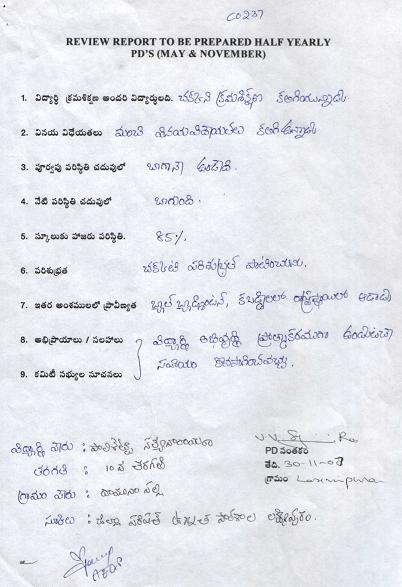 CO237
REVIEW REPORT TO BE PREPARED HALF YEARLY
PD'S (MAY & NOVEMBER)
1. విద్యార్థి క్రమశిక్షణ అందరి విద్యార్థులది. చక్కని క్రమశిక్షణ కలిగియున్నాడు
2. వినయ విధేయతలు మంచి వినయవిధేయతలు కలిగి ఉన్నాడు
3. పూర్వపు పరిస్థితి చదువులో బాగానే ఉండేది.
4. నేటి పరిస్థితి చదువులో బాగుంది.
5. స్కూలుకు హాజరు పరిస్థితి. 85%.
6. పరిశుభ్రత చక్కటి పరిశుభ్రత పాటించును.
7. ఇతర అంశములలో ప్రావీణ్యత కబడ్డీలలో ఆడాడు
8. అభిప్రాయాలు / సలహాలు విద్యార్థి అభివృద్ధి
9. కమిటీ సభ్యుల సూచనలు సహాయం
విద్యార్థి పేరు : సత్యనారాయణ
PD సంతకం
తరగతి : 10వ తరగతి
తేది. 30-11-07
గ్రామం
గ్రామం పేరు :
స్కూలు : జిల్లా పరిషత్ ఉన్నత పాఠశాల లక్ష్మీపురం.